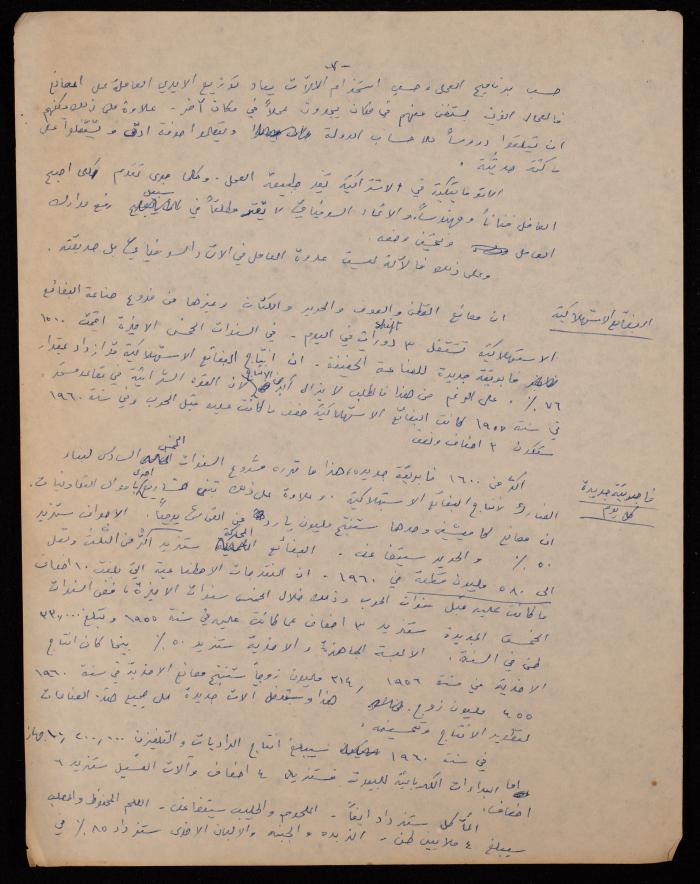 -٢-
حسب برنامج العمل وحسب استخدام الآلات يعاد توزيع الايدي العاملة على المصانع
فالعمال الذين يستغنى عنهم في مكان يجدون عملاً في مكان آخر - علاوة على ذلك يمكنهم
ان يتلقوا دروساً على حساب الدولة ويتعلموا حرفة ادق ويشتغلوا على
ماكنة حديثة .
الاتوماتيكية في الاشتراكية تغير طبيعة العمل . وكلما جرى تقدم كلما اصبح
العامل فناناً ومهندساً. والاتحاد السوفياتي لا يقتر مطلقاً في سبيل رفع مدارك
العامل وتحسين وضعه .
وعلى ذلك فالآلة ليست عدوة العامل في الاتحاد السوفياتي بل صديقته .
البضائع الاستهلاكية
ان مصانع القطن والصوف والحرير والكتان وغيرها من فروع صناعة البضائع
الاستهلاكية تشتغل ٣ دورات في اليوم - في السنوات الخمس الاخيرة اقيمت ١٥٠٠
فابريقة جديدة للصناعة الخفيفة - ان انتاج البضائع الاستهلاكية قد ازداد بمقدار
٧٦ ٪ . على الرغم من هذا فالطلب لا يزال أكبر من الانتاج لان القوة الشرائية في تصاعد مستمر .
في سنة ١٩٥٥ كانت البضائع الاستهلاكية ضعف ما كانت عليه قبل الحرب وفي سنة ١٩٦٠
ستكون ٣ اضعاف ونصف
فابريقة جديدة
كل يوم
اكثر من ١٦٠٠ فابريقة جديدة، هذا ما قرره مشروع السنوات الخمس السادس لبناء
لانتاج البضائع الاستهلاكية . وعلاوة على ذلك تبنى اخرى باموال التعاونيات.
ان مصانع وحدها ستنتج مليون يارد من القماش يومياً . الاصواف ستزيد
٥٠ ٪ والحرير سيتضاعف - البضائع المحاكة ستزيد اكثر من الثلث وتصل
الى ٥٨٠ مليون قطعة في ١٩٦٠ - ان النسيجات الاصطناعية التي بلغت ١٠ اضعاف
ما كانت عليه قبل سنوات الحرب وذلك خلال الخمس سنوات الاخيرة، ففي السنوات
الخمس الجديدة ستزيد ٣ اضعاف عما كانت عليه في سنة ١٩٥٥ وتبلغ ٣٣٠,٠٠٠
طن في السنة . الالبسة الجاهزة والاحذية ستزيد ٥٠ ٪ بينما كان انتاج
الاحذية في سنة ١٩٥٦ / ٣١٤ مليون زوجاً ستنتج مصانع الاحذية في سنة ١٩٦٠
٤٥٥ مليون زوج . هذا وستدخل آلات جديدة على جميع هذه الصناعات
لتطوير الانتاج وتحسينه .
في سنة ١٩٦٠ سيبلغ انتاج الراديات والتلفزيون ١٠,٢٠٠,٠٠٠ جهاز
اما البرادات الكهربائية للبيوت فستزيد ٤ اضعاف وآلات الغسيل ستزيد ٦
اضعاف .
المآكل ستزداد ايضاً - اللحوم والحليب سيتضاعف - اللحم المحفوظ والمعلب
سيبلغ ٤ ملايين طن - الزبده والجبنه والالبان الاخرى ستزداد ٨٥ ٪ في